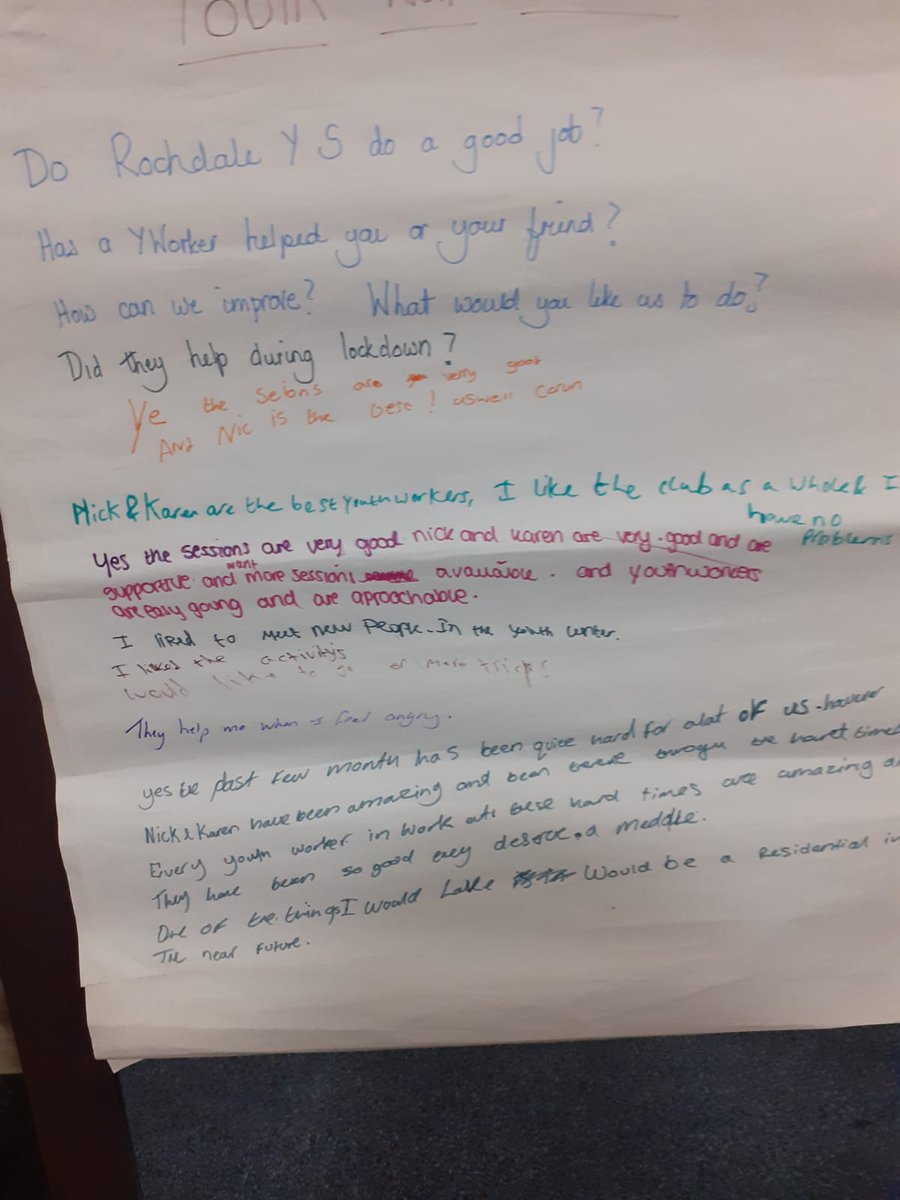 YOUTH
Do Rochdale Y S do a good job?
Has a YWorker helped you or your friend?
How can we improve? What would you like us to do?
Did they help during lockdown?
Ye the seions are very goot
And Nic is the best! aswell Carun
Nick & Karen are the best youth workers, I like the club as a whole & I
have no
problems
Yes the sessions are very good nick and karen are very good and are
supportive and want more sessions available. and youthworkers
are easy going and are aproachable.
I liked to meet new People-In the youth center.
I liked the activitys
would like to go on more trips
They help me when I feel angry.
yes the past few month has been quite hard for alat of us. however
Nick & Karen have been amazing and bean there through the hardt times
Every youth worker in work at these hard times are amazing
They have been so good they deserve a meddle.
One of the things I would Lake Would be a Residential in
The near future.